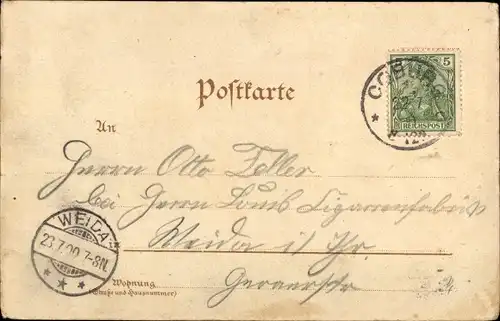 Postkarte
COBURG
5
REICHSPOST
An
Herrn Otto Zeller
bei Herrn Louis Cigarrenfabrik
Weida i/ Thr.
Geraerstr.
WEIDA
23.7.00.7-8N.
Wohnung
(Straße und Hausnummer)